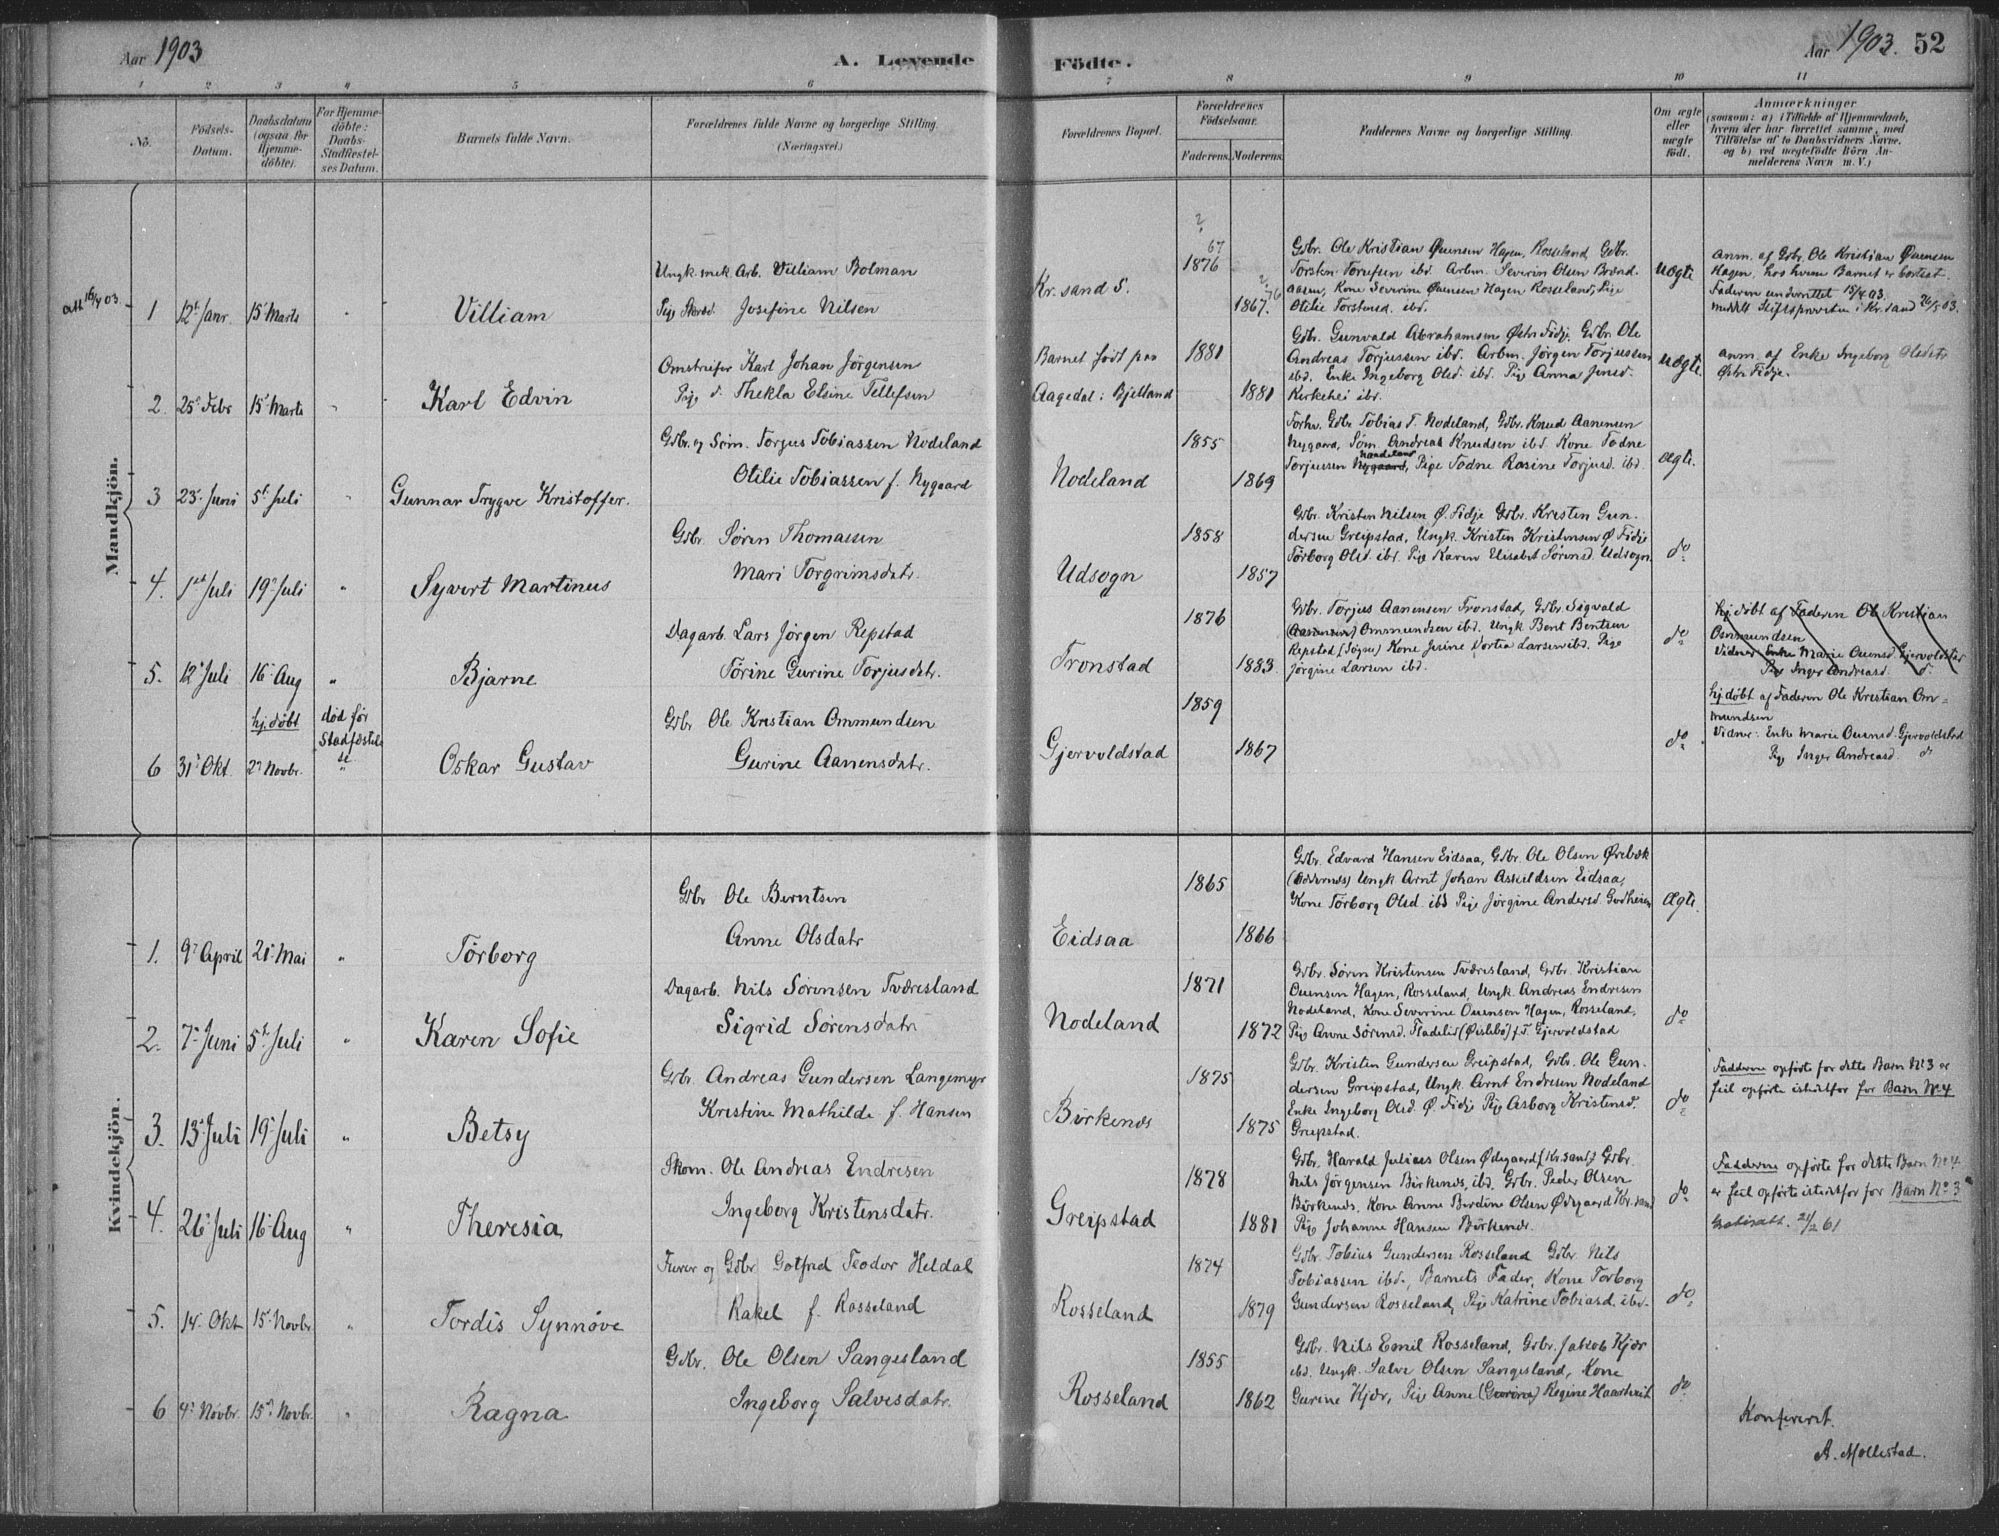 Aar 1903
A. Levende
Födte.
Aar 1903. 52
1 2 3 4 5 6 7 8 9 10 11
No.
Födsels-
Datum.
Daabsdatum
(ogsaa for
Hjemme-
döbte).
For Hjemme-
döbte:
Daabs-
Stadfæstel-
ses Datum.
Barnets fulde Navn.
Forældrenes fulde Navne og borgerlige Stilling.
(Næringsvei.)
Forældrenes Bopæl.
Forældrenes
Födselsaar.
Faderens. Moderens.
Faddernes Navne og borgerlige Stilling.
Om ægte
eller
uægte
födt.
Anmærkninger
(saasom: a) i Tilfælde af Hjemmedaab,
hvem der har forrettet samme, med
Tilföielse af to Daabsvidners Navne,
og b) ved uægtefödte Börn An-
melderens Navn m. V.)
Mandkjön.
att 16/4 03.
1 12t Janr. 15 Marts "
Villiam
Ungk. mek. Arb. Villiam Bolman
Pige Josefine Nilsen
Kr.sand S.
?
67
1876
1867.
76
Gdbr. Ole Kristian Ouensen Hagen, Rosseland, Gdbr.
Torsten Torjesen ibd. Arbm. Severin Olsen Brænd-
aasen, Kone Severine Ouensen Hagen Rosseland, Pige
Otilie Torstensd. ibd.
uægte
anm. af Gdbr. Ole Kristian Ouensen
Hagen, hos hvem Barnet er bortsat.
Faderen underrettet 15/4 03.
meddelt Stiftsprovsten i Kr.sand 26/5 03.
2. 25 Febr 15 Marts "
Karl Edvin
Omstreifer Karl Johan Jörgensen
Pige d. Thekla Elsine Tellefsen
Barnet født paa
Aagedal i Bjelland
1881
1881
Gdbr. Gunvald Abrahamsen Østre Fidje, Gdbr. Ole
Andreas Torjussen ibd. Arbm. Jörgen Torjussen
ibd. Enke Ingeborg Olsd. ibd. Pige Anna Jensd.
Kirkehei ibd.
uægte.
anm. af Enke Ingeborg Olsdtr
Østre Fidje.
3 23 Juni 5t Juli "
Gunnar Trygve Kristoffer.
Gdbr. og Søm. Torjus Tobiassen Nodeland
Otilie Tobiassen f. Nygaard
Nodeland
1855
1869
Forhv. Gdbr Tobias T. Nodeland, Gdbr. Knud Aanensen
Nygaard, Søm. Andreas Knudsen ibd. Kone Todne
Torjussen Nygaard, Nodeland Pige Todne Rosine Torjusd. ibd.
ægte.
4. 1ste Juli 19 Juli "
Syvert Martinus
Gdbr. Sören Thomassen
Mari Torgrimsdatr.
Udsogn
1858
1857
Gdbr. Kristen Nilsen Ø. Fidje Gdbr. Kristen Gun-
dersen Greipstad, Ungk. Kristen Kristensen Ø Fidje
Törborg Olsd. ibd. Pige Karen Elisabet Sörensd. Udsogn.
do
5. 12 Juli 16 Aug "
Bjarne
Dagarb. Lars Jörgen Repstad
Törine Gurine Torjusdatr.
Tronstad
1876
1883
Gdbr. Torjus Aanensen Tronstad, Gdbr. Sigvald
(Aanensen) Ommundsen ibd. Ungk Bent Bentsen
Repstad (Søgne) Kone Jesine Dortea Larsen ibd. Pige
Jörgine Larsen ibd.
do
hj.døbt af Faderen Ole Kristian
Ommundsen
Vidner Enke Marie Ouensd. Gjervoldstad
Pige Inger Andreasd. d
6 31 Okt. hj.døbt 2 Novbr. død før
Stadfæstel-
se
"
Oskar Gustav
Gdbr Ole Kristian Ommundsen
Gurine Aanensdatr.
Gjervoldstad
1859
1867
do
hj.døbt af Faderen Ole Kristian Om-
mundsen
Vidner: Enke Marie Ouensd. Gjervoldstad
Pige Inger Andreasd. d
Kvindekjön.
1. 9 April 21 Mai "
Törborg
Gdbr Ole Berntsen
Anne Olsdatr
Eidsaa
1865
1866
Gdbr. Edvard Hansen Eidsaa, Gdbr. Ole Olsen Ørebæk
(Oddernes) Ungk Arnt Johan Askildsen Eidsaa,
Kone Törborg Olsd. ibd Pige Jörgine Andersd. Godheien
Ægte.
2. 7 Juni 5t Juli "
Karen Sofie
Dagarb. Nils Sörensen Tværisland
Sigrid Sörensdatr
Nodeland
1871
1872
Gdbr. Sören Kristensen Tværisland, Gdbr. Kristian
Ouensen Hagen, Rosseland, Ungk. Andreas Endresen
Nodeland, Kone Severine Ouensen Hagen, Rosseland,
Pige Anne Sörensd. Stadelid (Øislebø) f.T. Gjervoldstad
do
3. 13 Juli 19 Juli "
Betsy
Gdbr. Andreas Gundersen Langemyr
Kristine Mathilde f. Hansen
Birkenes
1875
1875
Gdbr. Kristen Gundersen Greipstad, Gdbr. Ole Gun-
dersen Greipstad, Ungk. Arnt Endresen Nodeland
Enke Ingeborg Olsd. Ø. Fidje Pige Asborg Kristensd.
Greipstad.
do
Fadderne opførte for dette Barn No 3 er
feil opførte istedetfor for Barn No 4
4. 26 Juli 16 Aug "
Theresia
Skom. Ole Andreas Endresen
Ingeborg Kristensdatr.
Greipstad
1878
1881
Gdbr. Harald Julius Olsen Ødegaard (Kr.sand) Gdbr.
Nils Jörgensen Birkenes, ibd. Gdbr. Peder Olsen
Birkenes, Kone Anne Berdine Olsen Ødegaard Kr.sand
Pige Johanne Hansen Birkenes.
do
Fadderne opførte for dette Barn No 4
er feil opførte istedetfor for Barn No 3
Gratisatt. 21/2 61
5. 14. Okt 15. Novbr. "
Tordis Synnöve
Furer og Gdbr Gotfred Teodor Heldal
Rakel f. Rosseland
Rosseland
1874
1879
Gdbr. Tobias Gundersen Rosseland Gdbr. Nils
Tobiassen ibd., Barnets Fader, Kone Torborg
Gundersen Rosseland, Pige Katrine Tobiasd. ibd.
do
6 4 Novbr. 15 Novbr. "
Ragna
Gdbr. Ole Olsen Sangesland
Ingeborg Salvesdatr.
Rosseland
1855
1862
Gdbr. Nils Emil Rosseland, Gdbr. Jakob Kjær
ibd. Ungk. Salve Olsen Sangesland, Kone
Gurine Kjær, Pige Anne Regine Haartveit
do
Konfereret.
A. Mollestad.